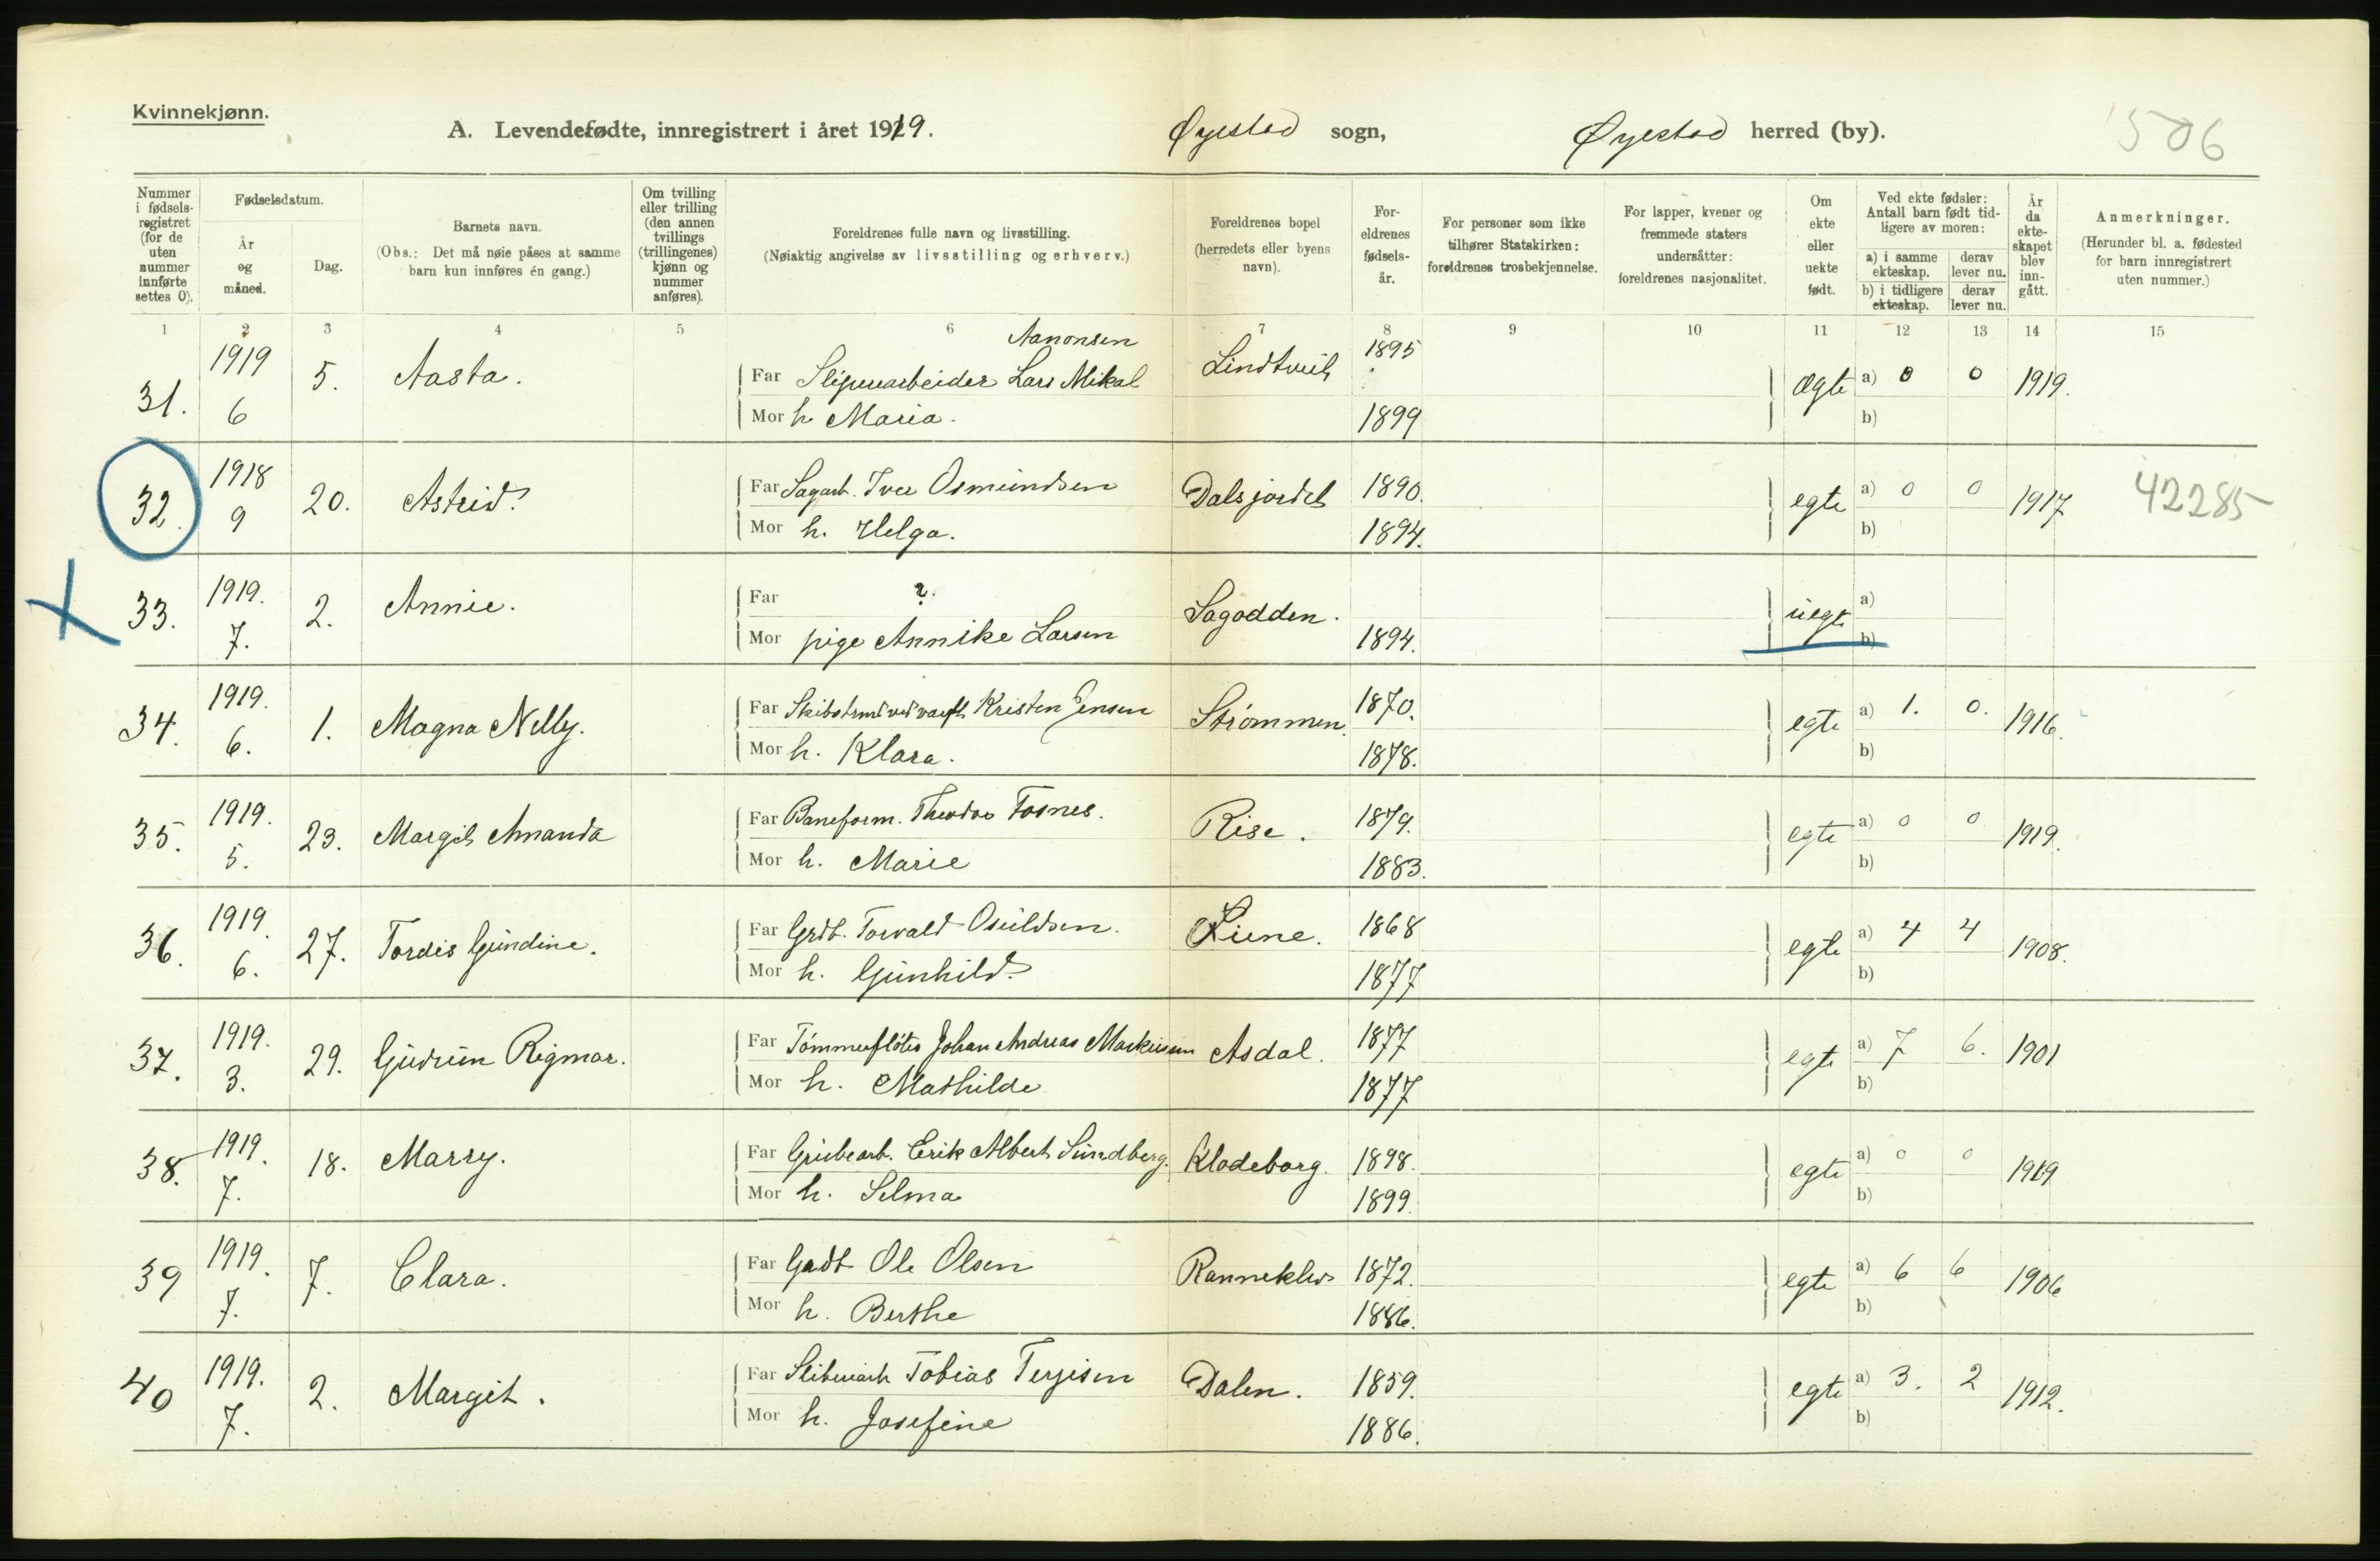 Kvinnekjønn.
A. Levendefødte, innregistrert i året 1919.
Øyestad sogn,
Øyestad herred (by).
506
Nummer i fødsels-registret (for de uten nummer innførte settes 0).
Fødselsdatum.
År og måned.
Dag.
Barnets navn.
(Obs.: Det må nøie påses at samme barn kun innføres én gang.)
Om tvilling eller trilling (den annen tvillings (trillingenes) kjønn og nummer anføres).
Foreldrenes fulle navn og livsstilling.
(Nøiaktig angivelse av livsstilling og erhverv.)
Foreldrenes bopel (herredets eller byens navn).
For-eldrenes fødsels-år.
For personer som ikke tilhører Statskirken: foreldrenes trosbekjennelse.
For lapper, kvener og fremmede staters undersåtter: foreldrenes nasjonalitet.
Om ekte eller uekte født.
Ved ekte fødsler: Antall barn født tid-ligere av moren:
a) i samme ekteskap.
derav lever nu.
b) i tidligere ekteskap.
derav lever nu.
År da ekte-skapet blev inn-gått.
Anmerkninger.
(Herunder bl. a. fødested for barn innregistrert uten nummer.)
1 2 3 4 5 6 7 8 9 10 11 12 13 14 15
Aanonsen
31. 1919 6 5. Aasta. Far Sliperarbeider Lars Mikal Lindtveit 1895 ægte a) 0 0 1919.
Mor h. Maria. 1899 b)
32. 1918 9 20. Astrid. Far Sagarb. Iver Osmundsen Dalsjordet 1890. egte a) 0 0 1917 42285
Mor h. Helga. 1894. b)
33. 1919. 7. 2. Annie. Far ?. Sagodden. uegte a)
Mor pige Annike Larsen 1894. b)
34. 1919. 6. 1. Magna Nelly. Far Kristen Jensen Strømmen. 1870. egte a) 1. 0. 1916.
Mor h. Klara. 1878. b)
35. 1919. 5. 23. Margit Amanda Far Baneform. Theodor Fosnes. Rise. 1879. egte a) 0 0 1919.
Mor h. Marie 1883. b)
36. 1919. 6. 27. Tordis Gundine. Far Grdb. Torvald Osuldsen. 1868 egte a) 4 4 1908.
Mor h. Gunhild. 1877 b)
37. 1919. 3. 29. Gudrun Rigmor. Far Tømmerfløter Johan Andreas Markussen Asdal. 1877 egte a) 7 6. 1901
Mor h. Mathilde 1877 b)
38. 1919. 7. 18. Marry. Far Grubearb. Erik Albert Sundberg. Klodeborg. 1898. egte a) 0 0 1919
Mor h. Selma 1899. b)
39 1919. 7. 7. Clara. Far Gadb Ole Olsen Rannekleiv 1872. egte a) 6 6 1906
Mor h. Berthe 1886. b)
40 1919. 7. 2. Margit. Far Sliberiarb Tobias Terjesen Dalen. 1859. egte a) 3. 2 1912.
Mor h. Josefine 1886. b)